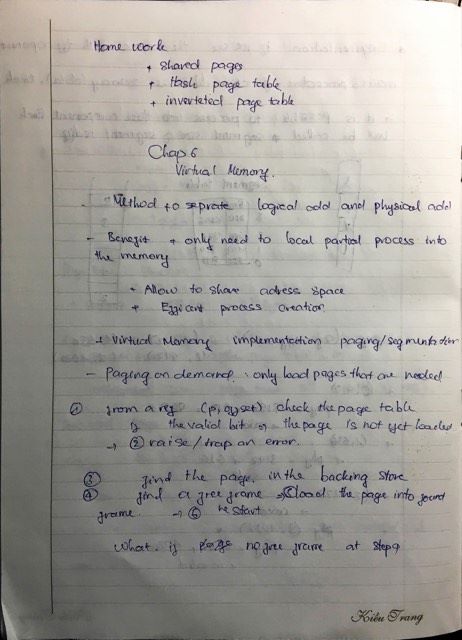 Home work
+ shared pages
+ Hash page table
+ inverteted page table
Chap 6
Virtual Memory.
- Method to seprate logical add and physical add
- Benefit + only need to local partial process into
the memory
+ Allow to share adress space
+ Efficent process creation
+ Virtual Memory implementation paging/segmentation
- Paging on demand : only load pages that are needed
① from a ref (p, offset) check the page table
if the valid bit of the page is not yet loaded
→ ② raise/trap an error.
③ find the page in the backing store
④ find a free frame → ⑤ load the page into found
frame. → ⑥ restart
What if no free frame at step 4
Kiều Trang